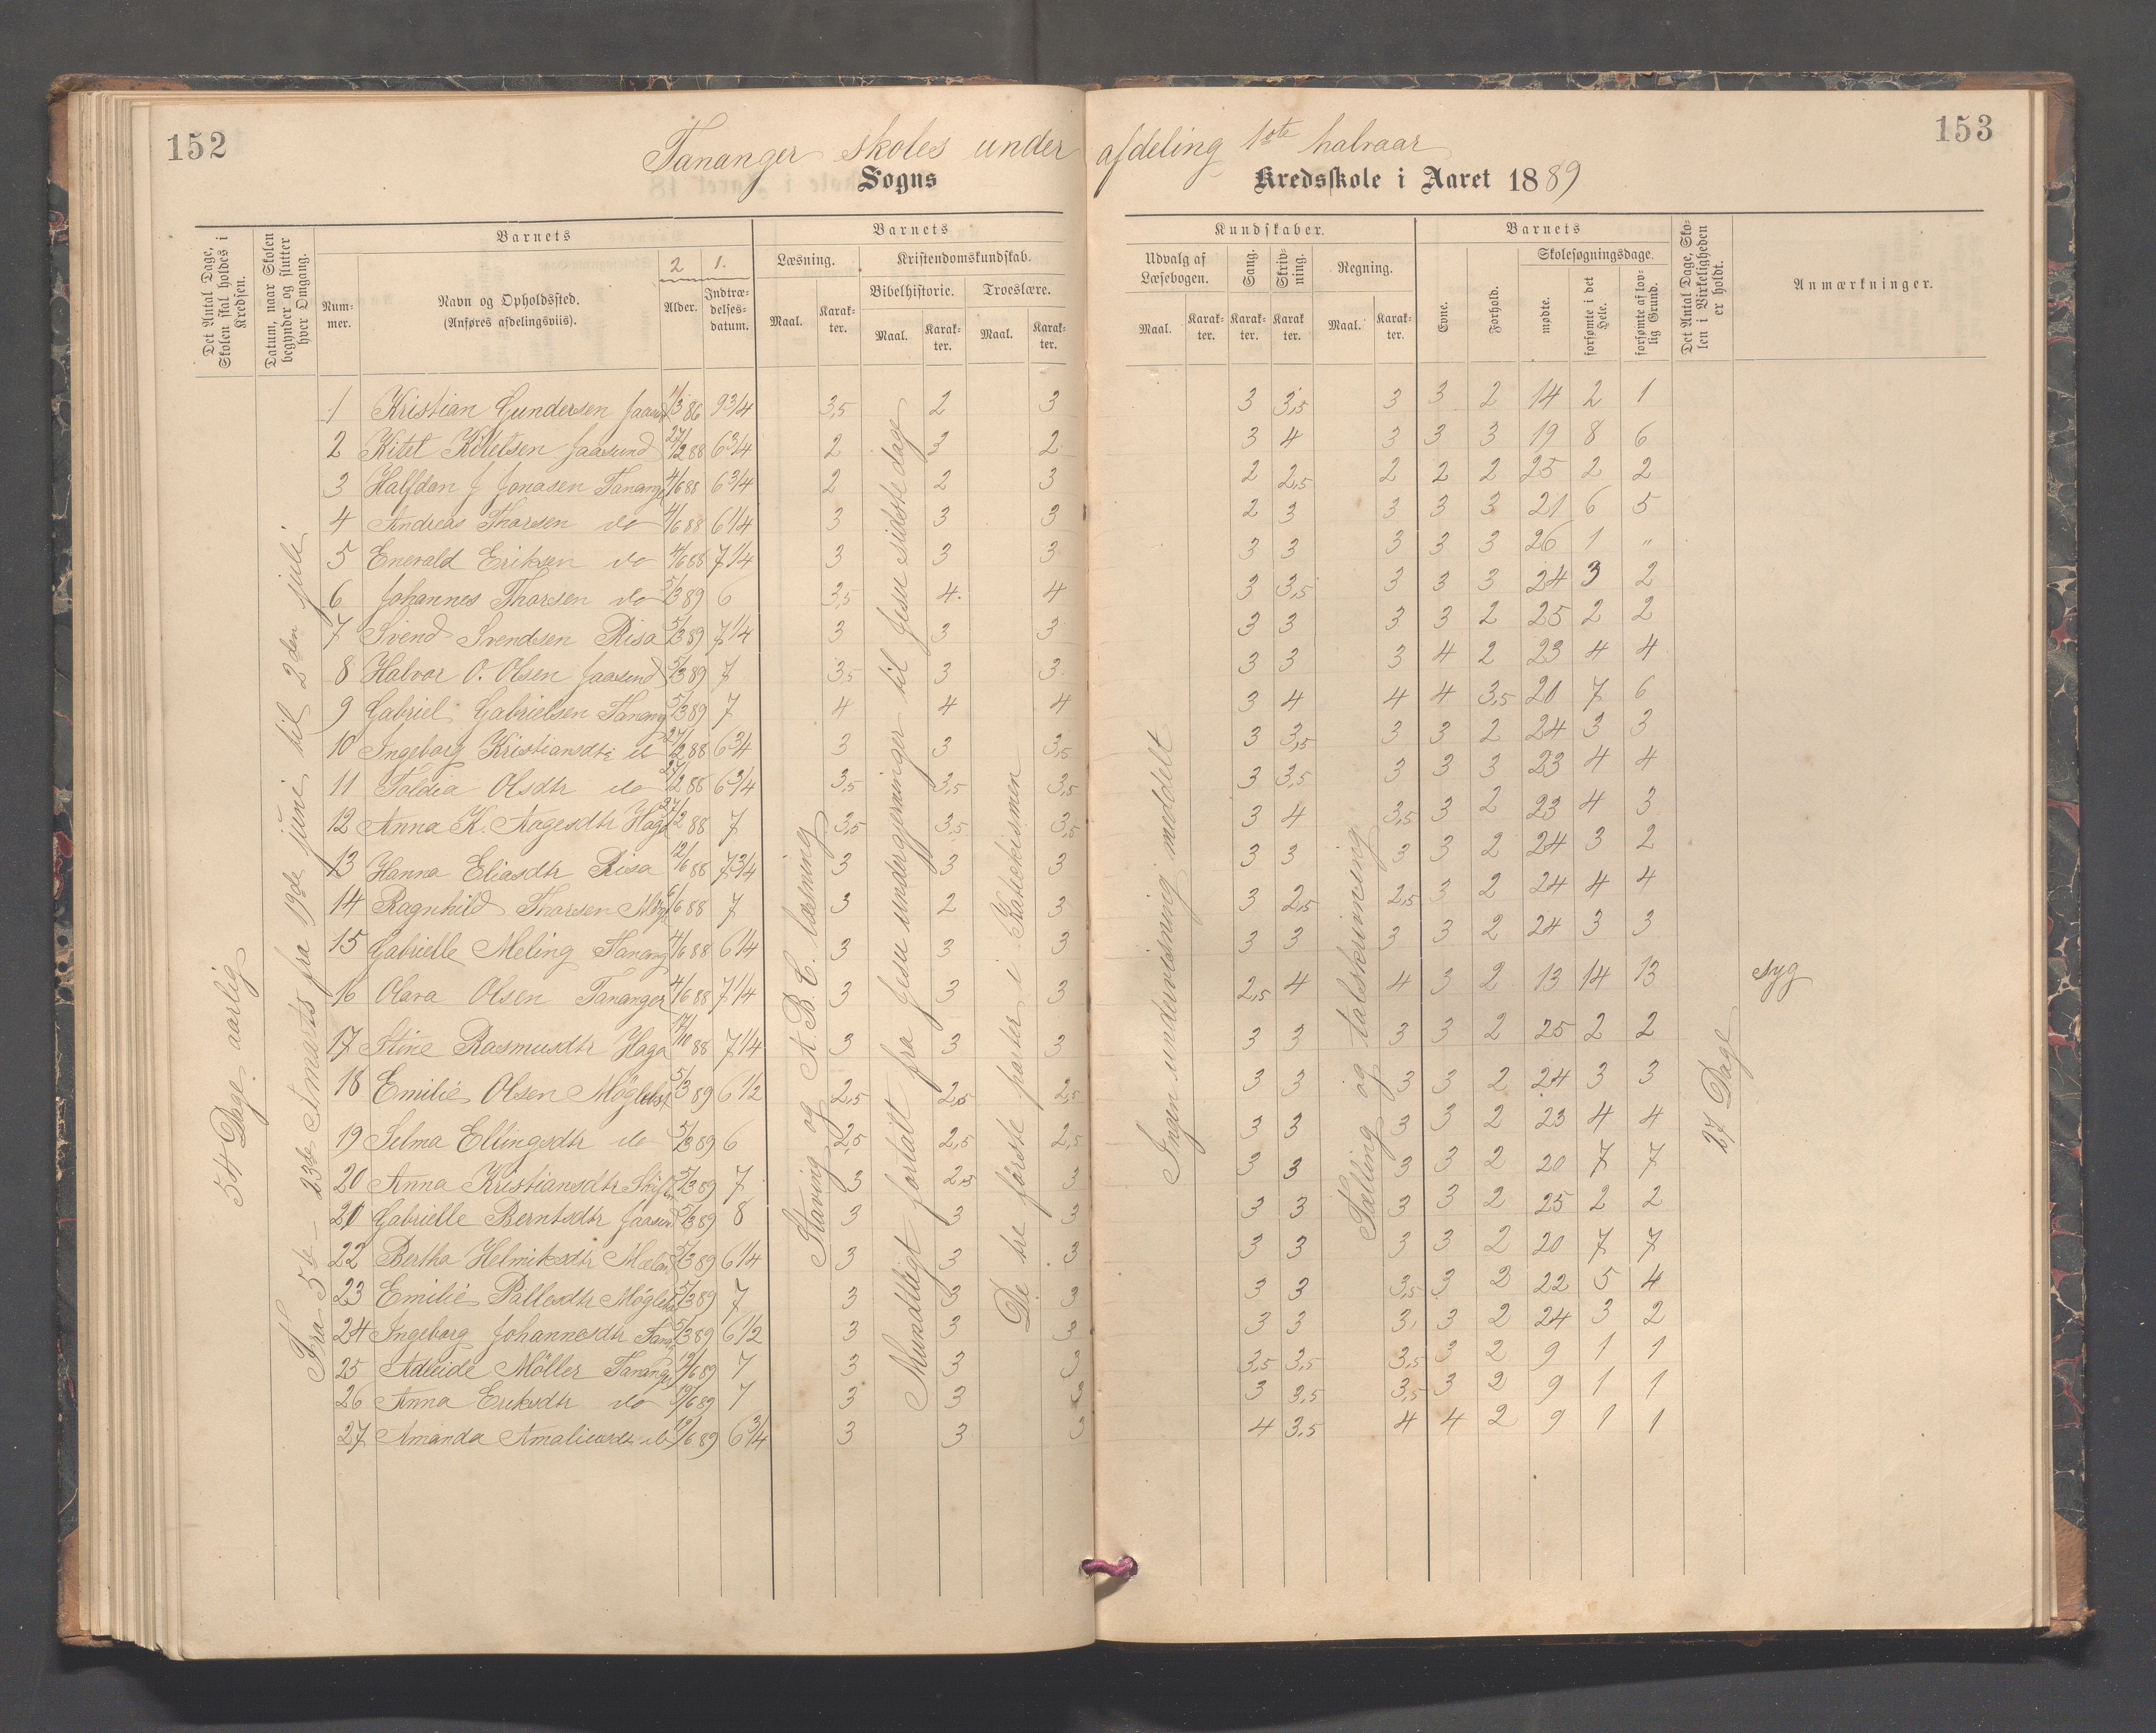 152
153
Tananger skoles under afdeling 1ste halvaar
Sogns Kredsskole i Aaret 1889
Det Antal Dage, Skolen skal holdes i Kredsen.
Datum, naar Skolen begynder og slutter hver Omgang.
Barnets
Nummer.
Navn og Opholdssted. (Anføres afdelingsviis).
2
Alder.
1.
Indtrædelsesdatum.
Barnets
Læsning.
Maal.
Karakter.
Kristendomskundskab.
Bibelhistorie.
Maal.
Karakter.
Troeslære.
Maal.
Karakter.
Kundskaber.
Udvalg af Læsebogen.
Maal.
Karakter.
Sang.
Karakter.
Skrivning.
Karakter.
Regning.
Maal.
Karakter.
Barnets
Evne.
Forhold.
Skolesøgningsdage.
mødte.
forsømte i det Hele.
forsømte af lovlig Grund.
Det Antal Dage, Skolen i Virkeligheden er holdt.
Anmærkninger.
54 Dage aarlig
Fra 5te - 23de marts fra 19de juni til 2den juli
Staving og A.B.C. læsning
Mundtligt fortalt fra Jesu undergjerninger til Jesu sidste dage
De tre første parter i Katekismen
Ingen undervisning meddelt
Tælling og talskrivning
27 Dage
1 Kristian Gundersen Jaasund 1/3 86 9 3/4 3,5 2 3 3 3,5 3 3 2 14 2 1
2 Kitel Kittelsen Jaasund 27/2 88 6 3/4 2 3 2 3 4 3 3 3 19 8 6
3 Halfdan J Jonasen Tanange 4/6 88 6 3/4 2 2 3 2 2,5 2 2 2 25 2 2
4 Andreas Thorsen do 4/6 88 6 1/4 3 3 3 2 3 3 3 3 21 6 5
5 Enevald Eriksen do 4/6 88 7 1/4 3 3 3 3 3 3 3 3 26 1 "
6 Johannes Thorsen do 5/3 89 6 3,5 4 4 3 3,5 3 3 3 24 3 2
7 Svend Svendsen Risa 5/3 89 7 1/4 3 3 3 3 3 3 3 2 25 2 2
8 Halvor O. Olsen Jaasund 5/3 89 7 3,5 3 3 3 3 3 4 2 23 4 4
9 Gabriel Gabrielsen Tanang 5/3 89 7 4 4 4 3 4 4 4 3,5 20 7 6
10 Ingeborg Kristiansdtr do 27/2 88 6 3/4 3 3 3,5 3 3,5 3 3 2 24 3 3
11 Toldia Olsdtr do 27/2 88 6 3/4 3,5 3,5 3,5 3 3,5 3 3 3 23 4 4
12 Anna K. Aagesdtr Haga 27/2 88 7 3,5 3,5 3,5 3 4 3,5 3 2 23 4 3
13 Hanna Eliasdtr Risa 12/6 88 7 3/4 3 3 3 3 3 3 3 2 24 3 2
14 Ragnhild Thorsen Møgl 6/6 88 7 3 2 3 3 2,5 2,5 3 2 24 4 4
15 Gabrielle Meling Tanang 4/6 88 6 1/4 3 3 3 3 3 3 3 2 24 3 3
16 Olava Olsen Tananger 4/6 88 7 1/4 3 3 3 2,5 4 4 3 2 13 14 13 syg
17 Stine Rasmusdtr Haga 17/10 88 7 1/4 3 3 3 3 3 3 3 2 25 2 2
18 Emilie Olsen Møglebst 5/3 89 6 1/2 2,5 2,5 2,5 3 3 3 3 2 24 3 3
19 Selma Ellingsdtr do 5/3 89 6 2,5 2,5 2,5 3 3 3 3 2 23 4 4
20 Anna Kristiansdtr 5/3 89 7 3 2,5 3 3 3 3 3 2 20 7 7
21 Gabrielle Berntsdtr Jaasund 5/3 89 8 3 3 3 3 3 3 3 2 25 2 2
22 Bertha Helmiksdtr 5/3 89 6 1/4 3 3 3 3 3 3 3 2 20 7 7
23 Emilie Pallesdtr Møglebst 5/3 89 7 3 3 3 3 3 3,5 3 2 22 5 4
24 Ingeborg Johannesdtr Tanan 5/3 89 6 1/2 3 3 3 3 3 3, 3 2 24 3 2
25 Adleide Möller Tanange 19/6 89 7 3 3 3 3,5 3,5 3,5 3 2 9 1 1
26 Anna Eriksdtr do 19/6 89 7 3 3 3 3 3,5 3,5 3 2 9 1 1
27 Amanda Amaliusdtr do 19/6 89 6 3/4 3 3 3 4 3,5 4 4 2 9 1 1